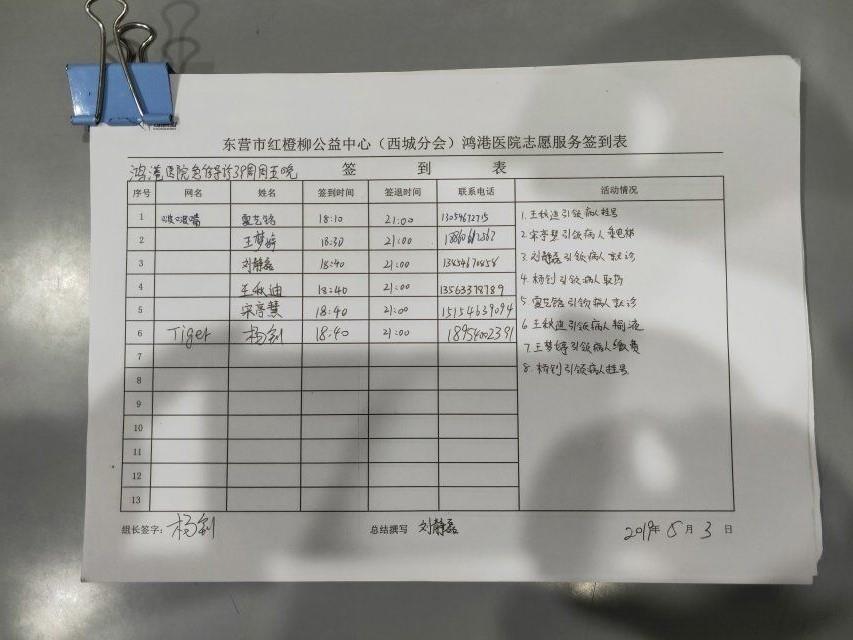 东营市红橙柳公益中心（西城分会）鸿港医院志愿服务签到表
签 到 表
鸿港医院急诊导诊39周周五晚
序号 网名 姓名 签到时间 签退时间 联系电话 活动情况
1 18:10 21:00 13054672715
2 王梦婷 18:30 21:00
3 刘静磊 18:40 21:00
4 王秋迪 18:40 21:00 13563378789
5 宋亭慧 18:40 21:00 15154639094
6 Tiger 杨钊 18:40 21:00 18954002391
7
8
9
10
11
12
13
1.王秋迪引领病人挂号
2.宋亭慧引领病人乘电梯
3.刘静磊引领病人就诊
4.杨钊引领病人取药
5 引领病人就诊
6 王秋迪引领病人输液
7.王梦婷引领病人缴费
8.杨钊引领病人挂号
组长签字：杨钊 总结撰写 刘静磊 2019年5月3日